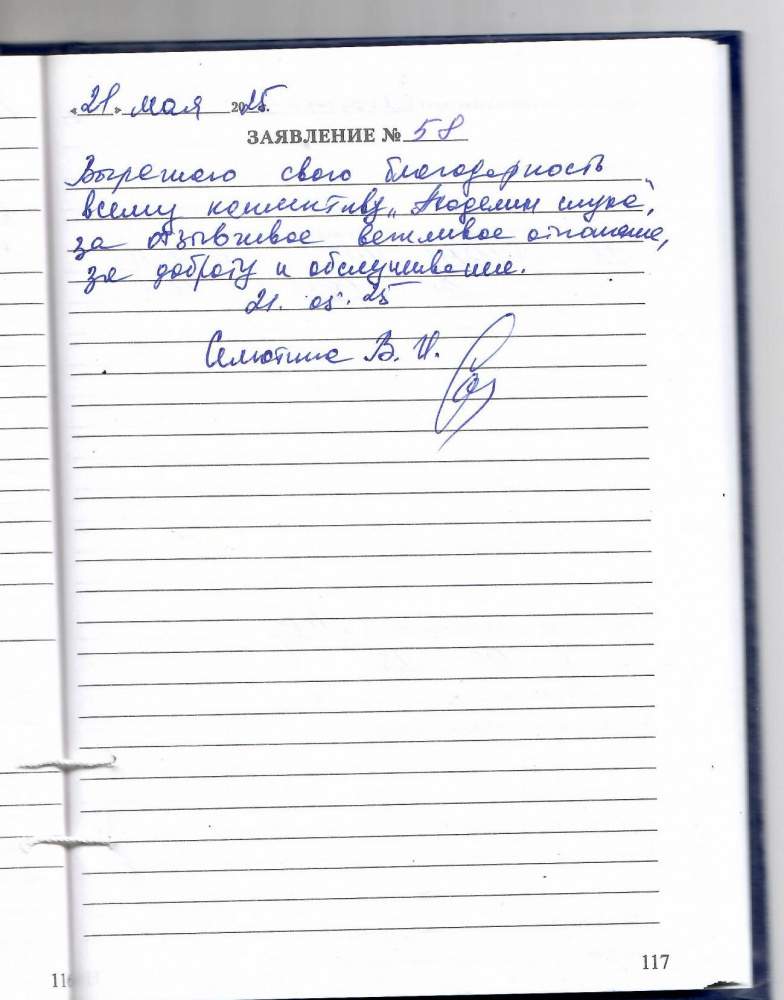 «21» мая 2025г.
ЗАЯВЛЕНИЕ № 58
Выражаю свою благодарность
всему коллективу „Академии слуха",
за отзывчивое вежливое отношение,
за доброту и обслуживание.
21. 05. 25
Селютина В. И.
117